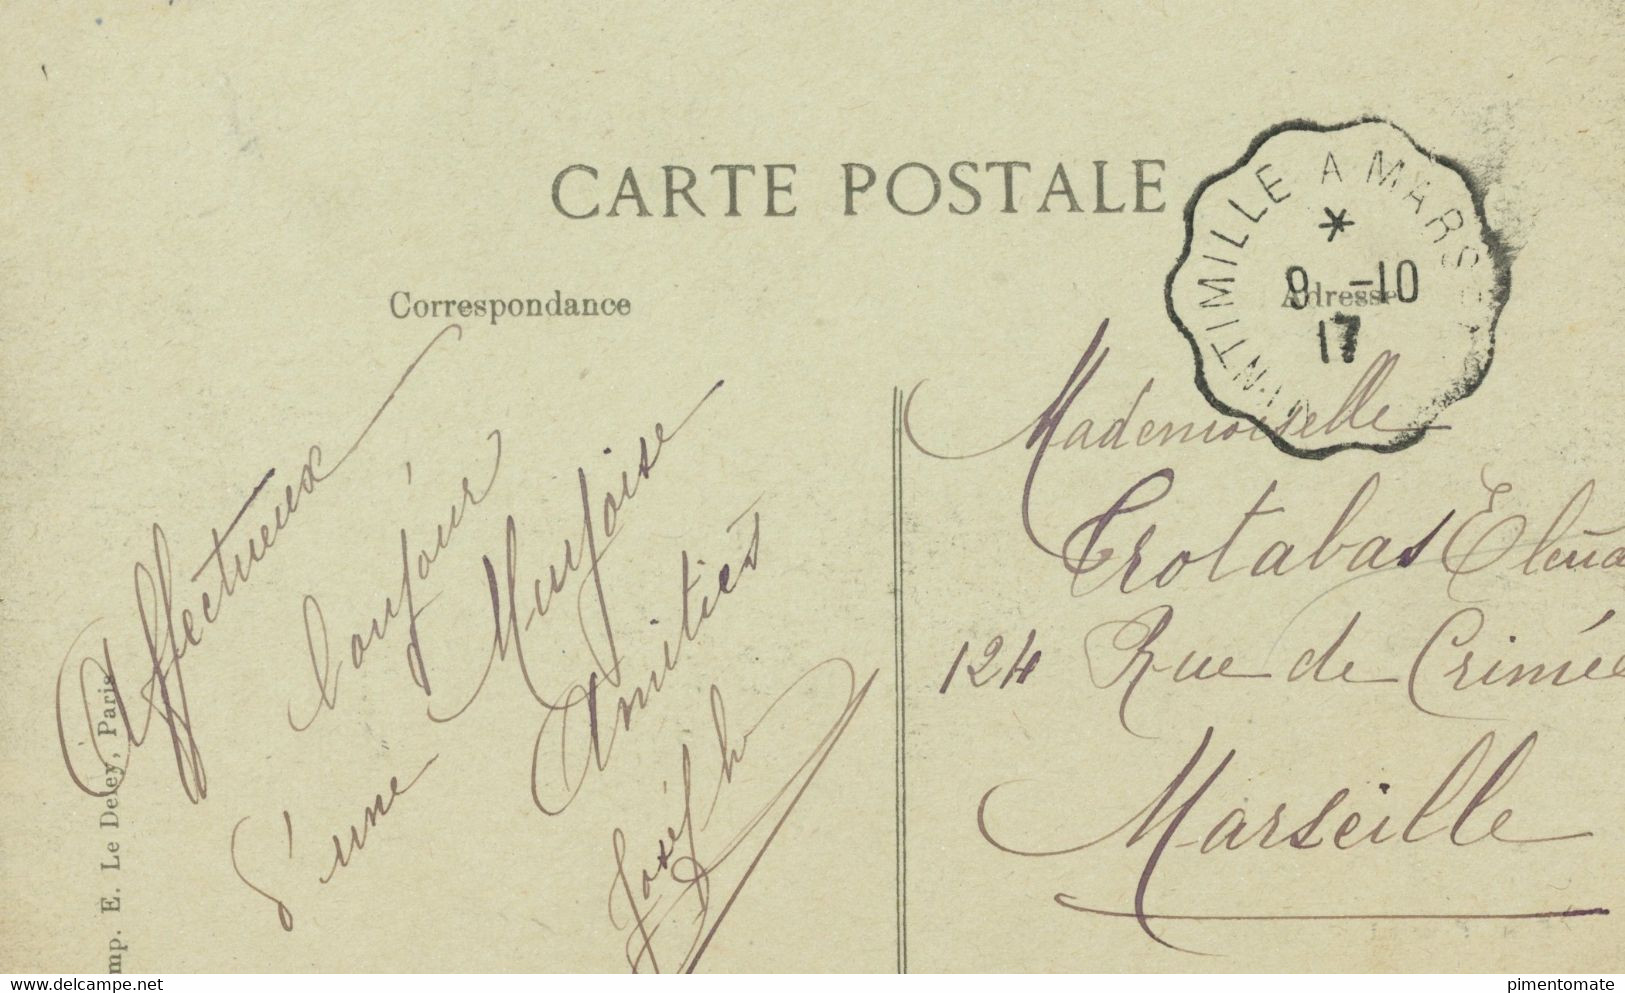 CARTE POSTALE
Correspondance
Adresse
VINTIMILLE A MARSEILLE
*
9 -10
17
Affectueux
bonjour
d'une
Amitiés
Joseph
Mademoiselle
Trotabas Eléna
124 Rue de Crimée
Marseille
Imp. E. Le Deley, Paris
www.delcampe.net
pimentomate